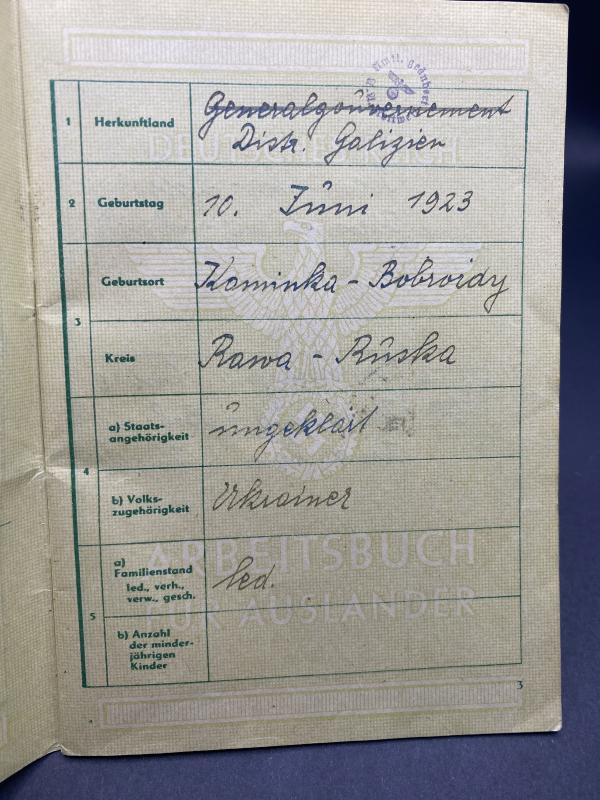 DEUTSCHES REICH
1 Herkunftland Generalgouvernement
Distr. Galizien
2 Geburtstag 10. Juni 1923
3 Geburtsort Kaminka - Bobroidy
Kreis Rawa - Ruska
4 a) Staats-
angehörigkeit ungeklärt
b) Volks-
zugehörigkeit Ukrainer
ARBEITSBUCH
FÜR AUSLÄNDER
5 a)
Familienstand
led., verh.,
verw., gesch. led.
b) Anzahl
der minder-
jährigen
Kinder
3